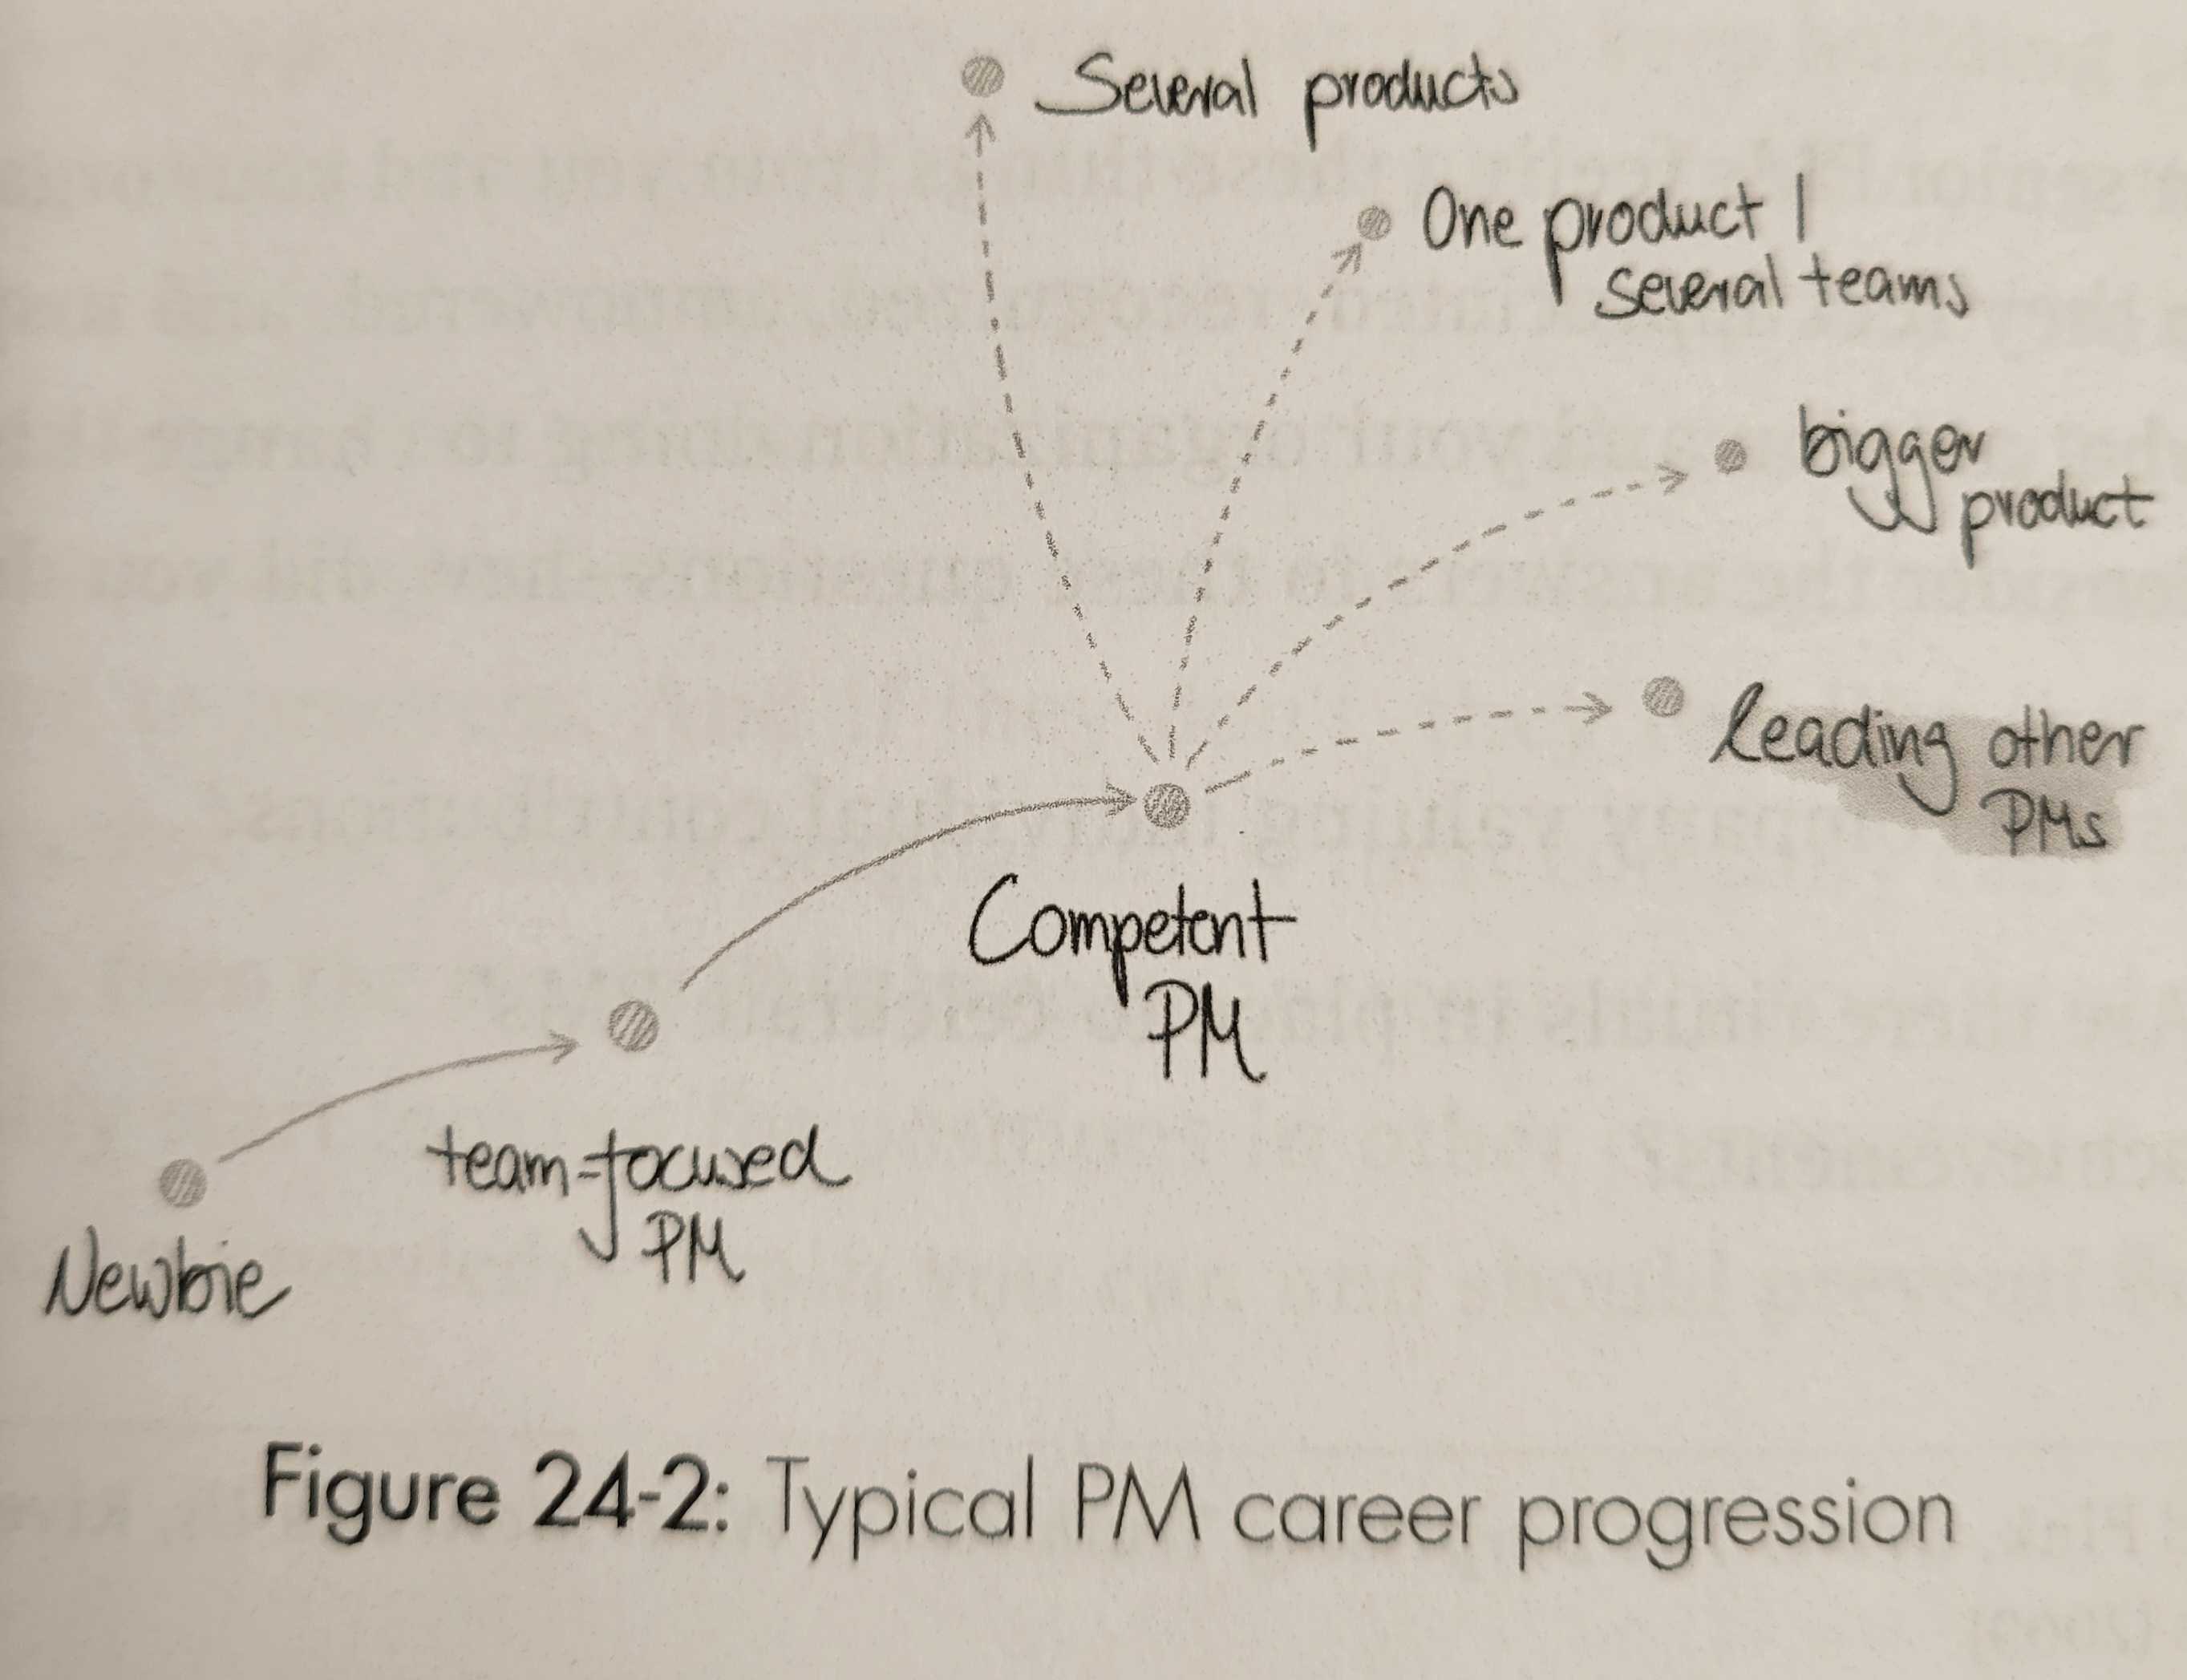 Several products
One product |
several teams
bigger
product
leading other
PMs
Competent
PM
team-focused
PM
Newbie
Figure 24-2: Typical PM career progression